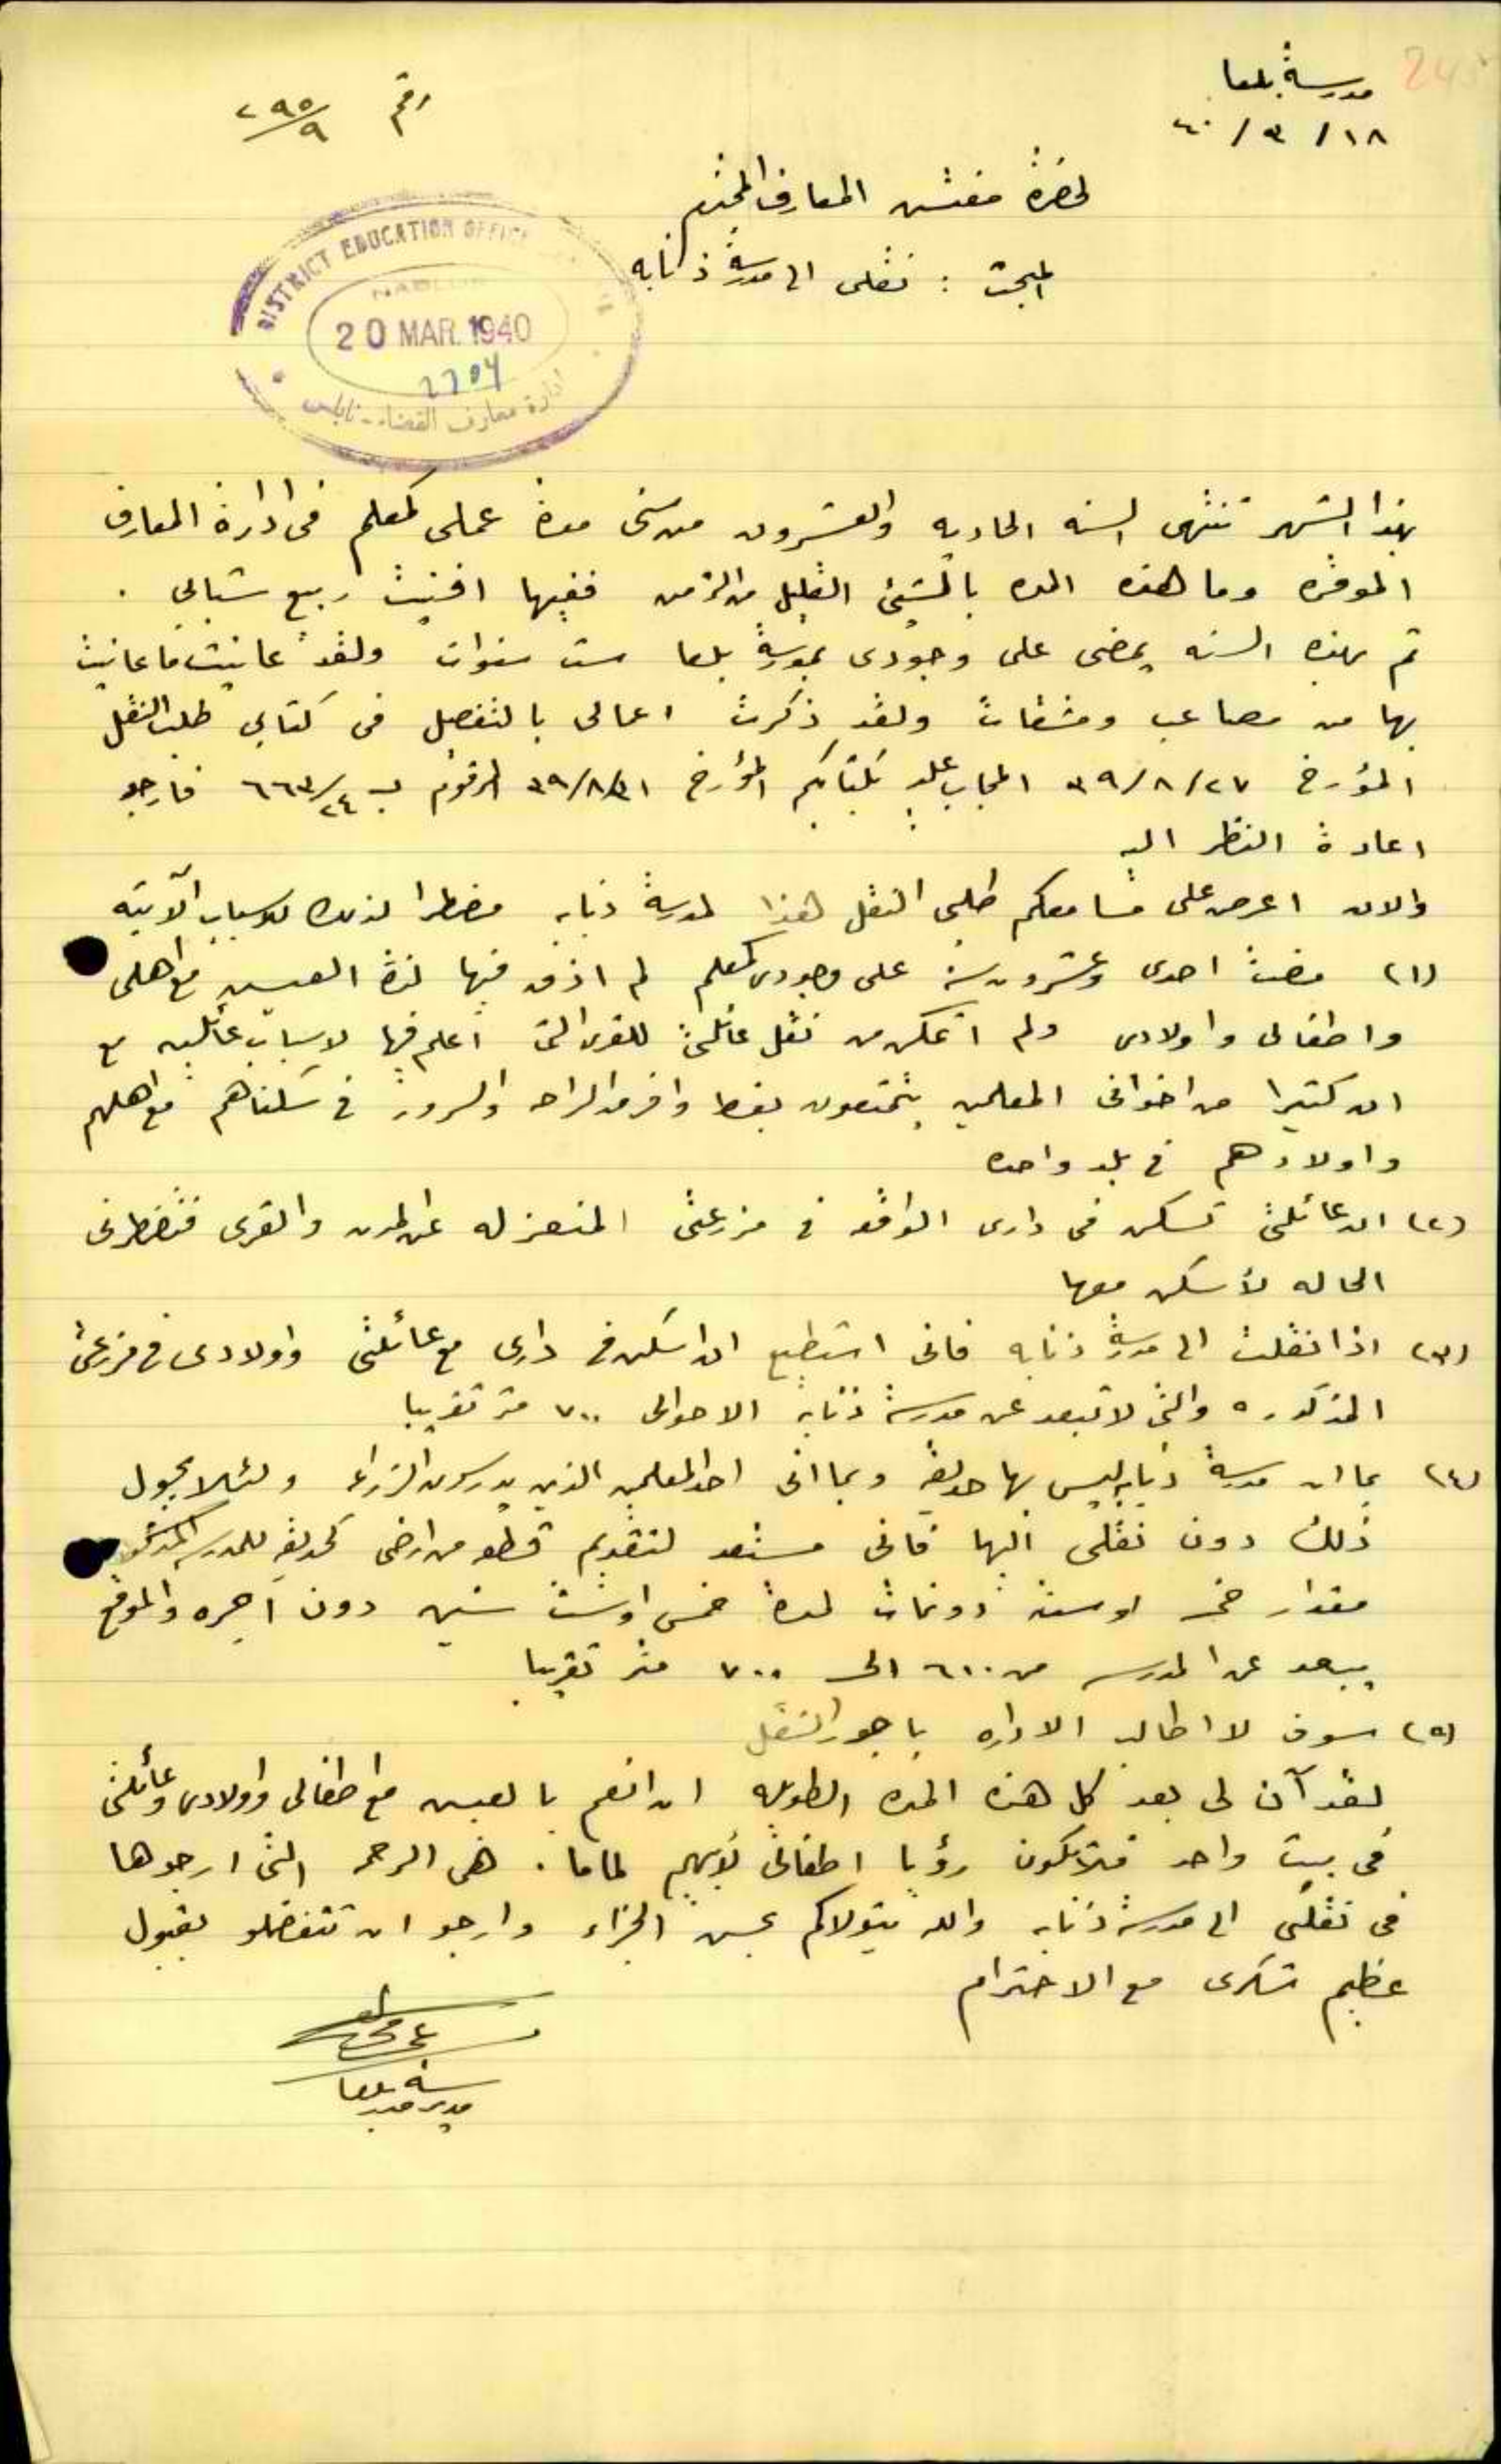 مدرسة بلعا
١٨/٣/٤٠
رقم ٢٩٥/٩
لحضرة مفتش المعارف المحترم
المبحث : نقلي الى مدرسة ذنابه
DISTRICT EDUCATION OFFICE
NABLUS
20 MAR. 1940
ادارة معارف القضاء - نابلس
بهذا الشهر تنتهي السنه الحاديه والعشرون من سني مدة عملي كمعلم في ادارة المعارف
الموقره وما هذه المده بالشيئ القليل من الزمن ففيها افنيت ربيع شبابي .
ثم بهذه السنه يمضي على وجودي بمدرسة بلعا ست سنوات ولقد عانيت ما عانيت
بها من مصاعب ومشقات ولقد ذكرت اعمالي بالتفصل في كتابي طلب النقل
المؤرخ ٢٧/٨/٣٩ المجاب عليه بكتابكم المؤرخ ٣١/٨/٣٩ المرقوم ب ٦٦٣/٢٤ فارجو
اعادة النظر اليه
والان اعرض على مسامعكم طلبي النقل هذا لمدرسة ذنابه مضطرا لذلك للاسباب الآتيه
(١) مضت احدى وعشرون سنة على وجودي كمعلم لم اذق فيها لذة العيش مع اهلي
واطفالي واولادي ولم اتمكن من نقل عائلتي للقرى التي اعلم فيها لاسباب عائليه مع
ان كثيرا من اخواني المعلمين يتمتعون بقسط وافر من الراحه والسرور في سكناهم مع اهلهم
واولادهم في بلد واحده
(٢) ان عائلتي تسكن في داري الواقعه في مزرعتي المنعزله عن المدن والقرى فتضطرني
الحاله لأسكن معها
(٣) اذا نقلت الى مدرسة ذنابه فاني استطيع ان اسكن في داري مع عائلتي واولادي في مزرعتي
المذكوره والتي لا تبعد عن مدرسة ذنابة الا حوالي ٧٠٠ متر تقريبا
(٤) بما ان مدرسة ذنابه ليس بها حديقة وبما اني احد المعلمين الذين يدرسون الزراعه ولئلا يحول
ذلك دون نقلي اليها فاني مستعد لتقديم قطعه من ارضي كحديقه للمدرسه المذكوره
مقدار خمسه او سته دونمات لمدة خمس او ست سنين دون اجره والموقع
يبعد عن المدرسه من ٦٠٠ الى ٧٠٠ متر تقريبا
(٥) سوف لا اطالب الاداره باجور النقل
لقد آن لي بعد كل هذه المده الطويله ان انعم بالعيش مع اطفالي واولادي وعائلتي
في بيت واحد فلا تكون رؤيا اطفالي لأبيهم لماما . هي الرحمه التي ارجوها
في نقلي الى مدرسة ذنابه والله يتولاكم بحسن الجزاء وارجو ان تتفضلو بقبول
عظيم شكري مع الاحترام
مدير مدرسة بلعا